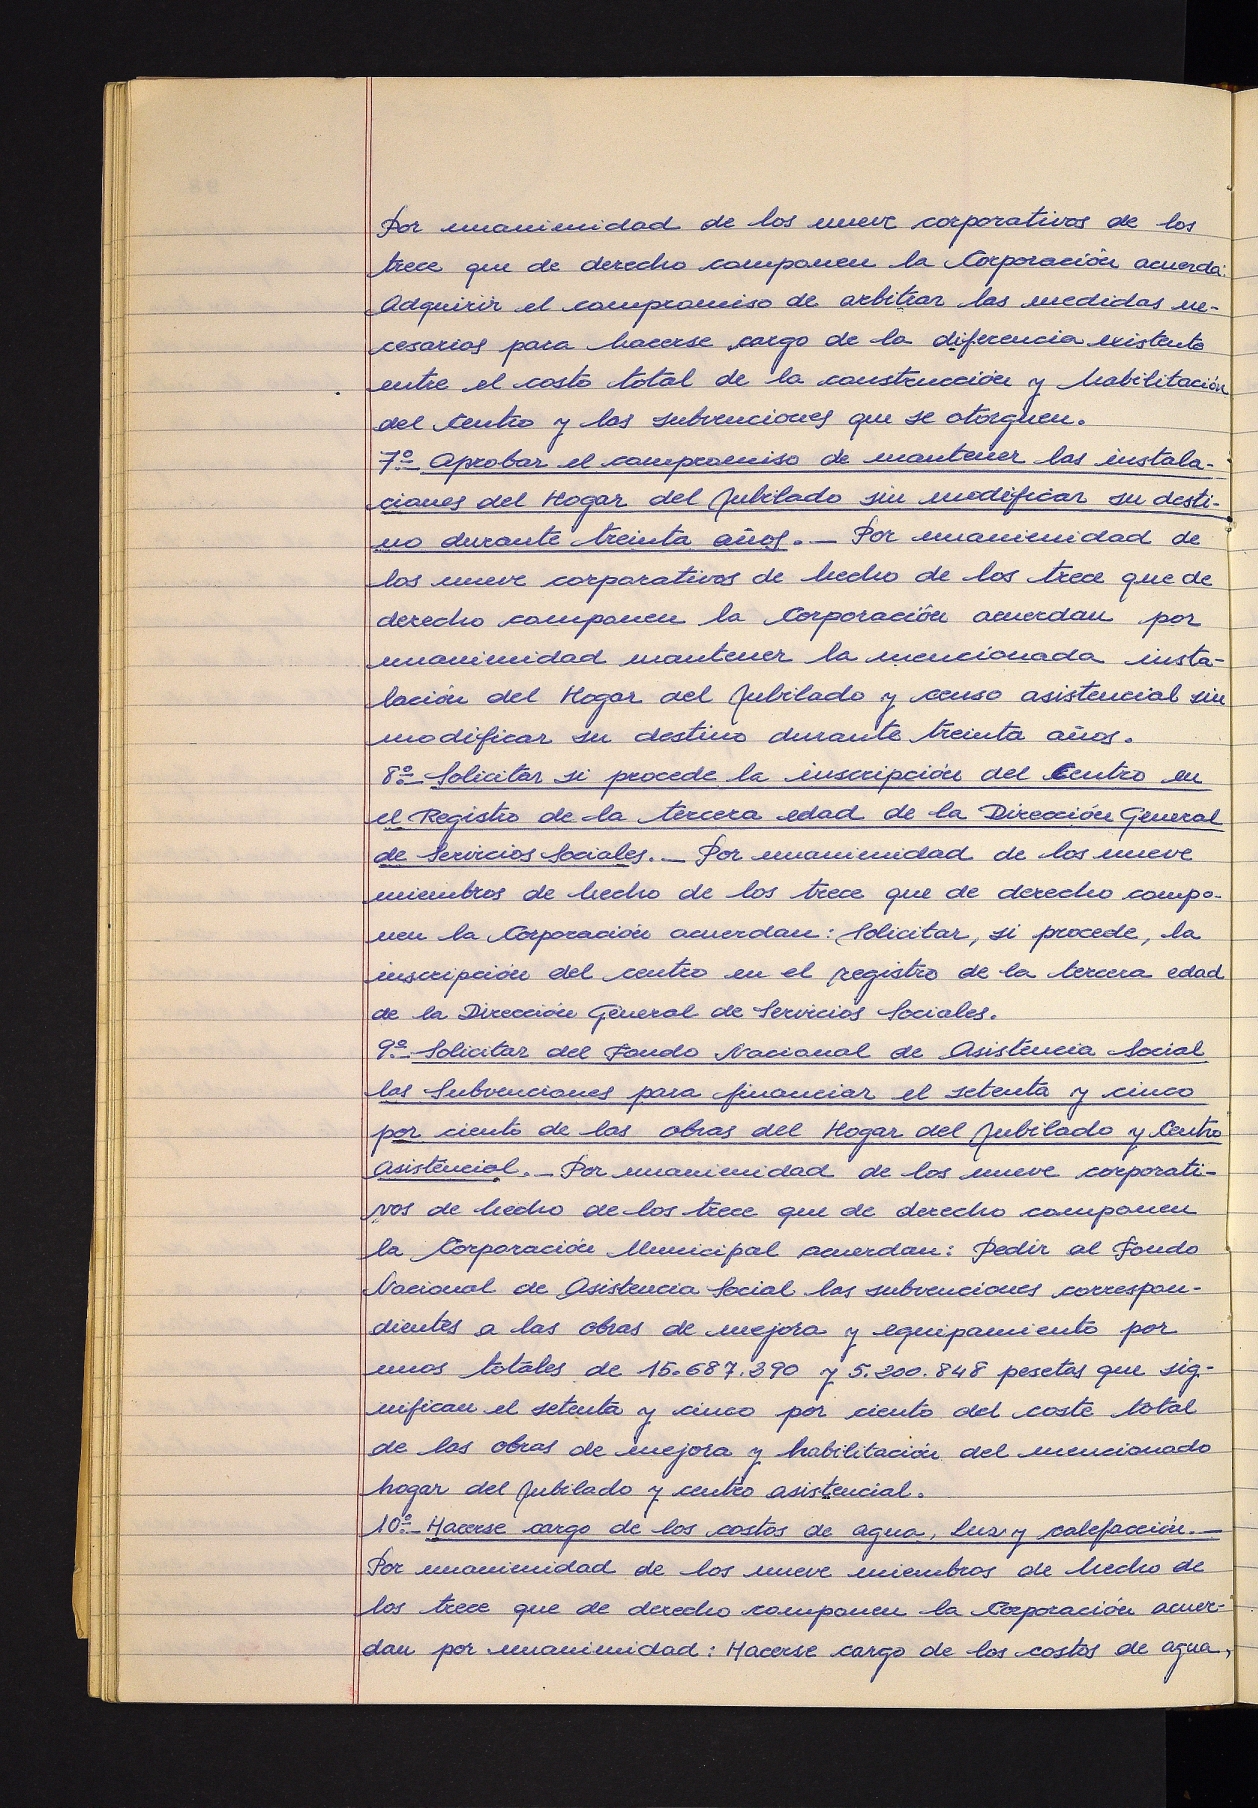 Por unanimidad de los nueve corporativos de los
trece que de derecho componen la Corporación acuerda:
Adquirir el compromiso de arbitrar las medidas ne-
cesarias para hacerse cargo de la diferencia existente
entre el costo total de la construcción y habilitación
del Centro y las subvenciones que se otorguen.
7º- Aprobar el compromiso de mantener las instala-
ciones del Hogar del Jubilado sin modificar su desti-
no durante treinta años.- Por unanimidad de
los nueve corporativos de hecho de los trece que de
derecho componen la Corporación acuerdan por
unanimidad mantener la mencionada insta-
lación del Hogar del Jubilado y censo asistencial sin
modificar su destino durante treinta años.
8º- Solicitar si procede la inscripción del Centro en
el Registro de la tercera edad de la Dirección General
de Servicios Sociales.- Por unanimidad de los nueve
miembros de hecho de los trece que de derecho compo-
nen la Corporación acuerdan: Solicitar, si procede, la
inscripción del centro en el registro de la tercera edad
de la Dirección General de Servicios Sociales.
9º- Solicitar del Fondo Nacional de Asistencia Social
las Subvenciones para financiar el setenta y cinco
por ciento de las obras del Hogar del Jubilado y Centro
Asistencial.- Por unanimidad de los nueve corporati-
vos de hecho de los trece que de derecho componen
la Corporación Municipal acuerdan: Pedir al Fondo
Nacional de Asistencia Social las subvenciones correspon-
dientes a las obras de mejora y equipamiento por
unos totales de 15.687.390 y 5.200.848 pesetas que sig-
nifican el setenta y cinco por ciento del coste total
de las obras de mejora y habilitación del mencionado
hogar del Jubilado y centro asistencial.
10º- Hacerse cargo de los costos de agua, Luz y calefacción.-
Por unanimidad de los nueve miembros de hecho de
los trece que de derecho componen la Corporación acuer-
dan por unanimidad: Hacerse cargo de los costos de agua,